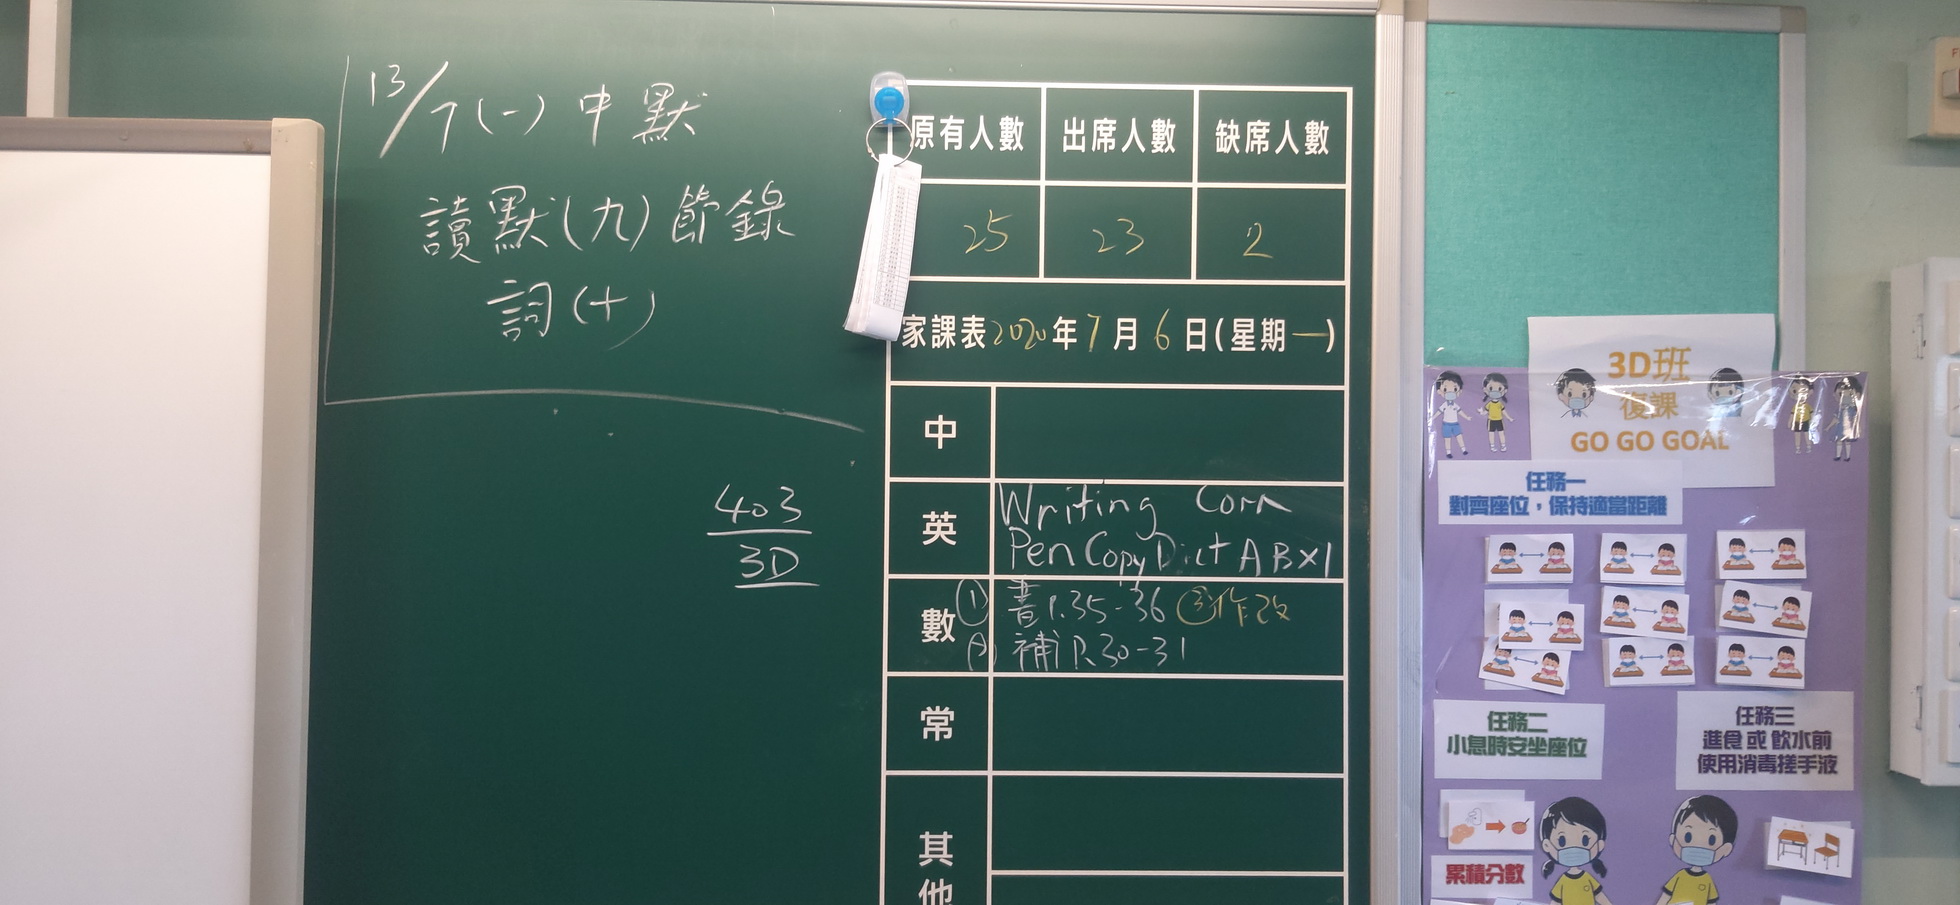 13/7(一) 中默
讀默(九)節錄
詞(十)
403
3D
原有人數 出席人數 缺席人數
25 23 2
家課表2020年7月6日(星期一)
中
英 Writing Corr
Pen Copy Dict A B×1
數 ① 書P.35-36 ③作改
② 補P.30-31
常
其他
3D班
復課
GO GO GOAL
任務一
對齊座位，保持適當距離
任務二
小息時安坐座位
任務三
進食 或 飲水前
使用消毒搓手液
累積分數